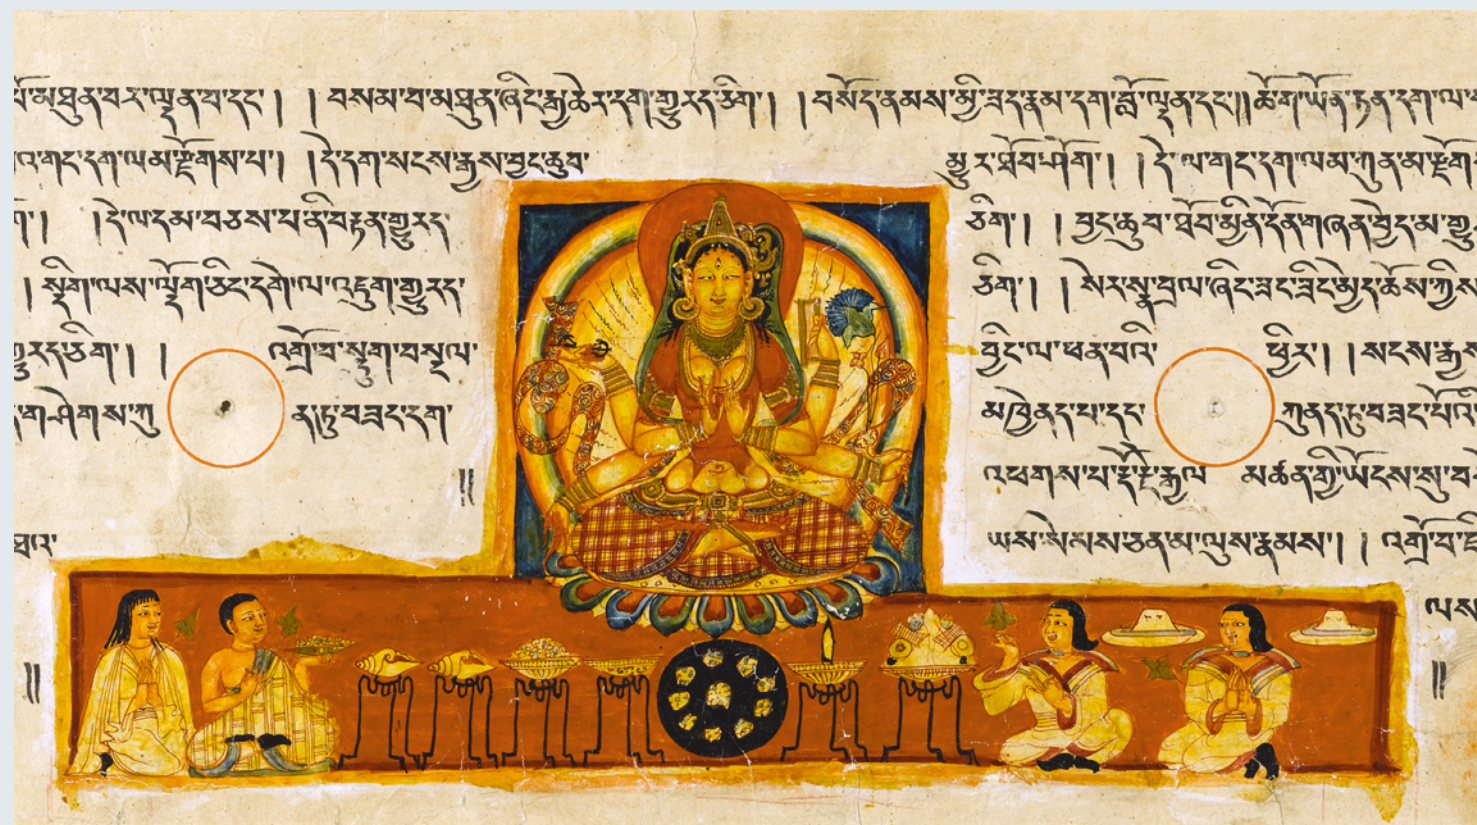 མཐུན་བར་ལྡན་བ་དང་། །བསམ་བ་མཐུན་ཞིང་རྒྱ་ཆེར་དག་གྱུརད་ཅིག། །བསོད་ནམས་མྱི་ཟད་རྣམ་དག་བློ་ལྡན་དང་།།ཆོ་ག་ཡོན་ཏན་དག་ལ་
གང་དག་ལམ་རྫོགས་པ། །དེ་དག་སངས་རྒྱས་བྱང་ཆུབ་ མྱུར་ཐོབ་ཤོག། །དེ་ལ་གང་དག་ལམ་ཀུན་མ་རྫོག
།དེ་ལ་དམ་བཅས་པ་ནི་བརྟན་གྱུརད་ ཅིག། །བྱང་ཆུབ་ཐོབ་མྱིན་དོན་གཞན་བྱེད་མ་
།སྡིག་ལས་ལྡོག་ཅིང་དགེ་ལ་འཇུག་གྱུརད་ ཅིག། །སེར་སྣ་བྲལ་ཞིང་ཟང་ཟིང་མྱེད་ཆོས་ཀྱིས
གྱུརད་ཅིག། ། འགྲོ་བ་སྡུག་བསྔལ་ བྱིང་ལ་ཕན་བའི་ ཕྱིར། །སངས་རྒྱས
ཤེགས་ཀུ ན་ཏུ་བཟང་དག་ མཁྱེནད་པ་དང་ ཀུནད་ཏུ་བཟང་པོའི
།། འཕགས་པ་རྡོ་རྗེ་རྒྱལ མཚན་གྱི་ཡོངས་སུ་
ཐའ་ ཡས་སེམས་ཅན་མ་ལུས་རྣམས། །འགྲོ་བ་
།། ལས
།།